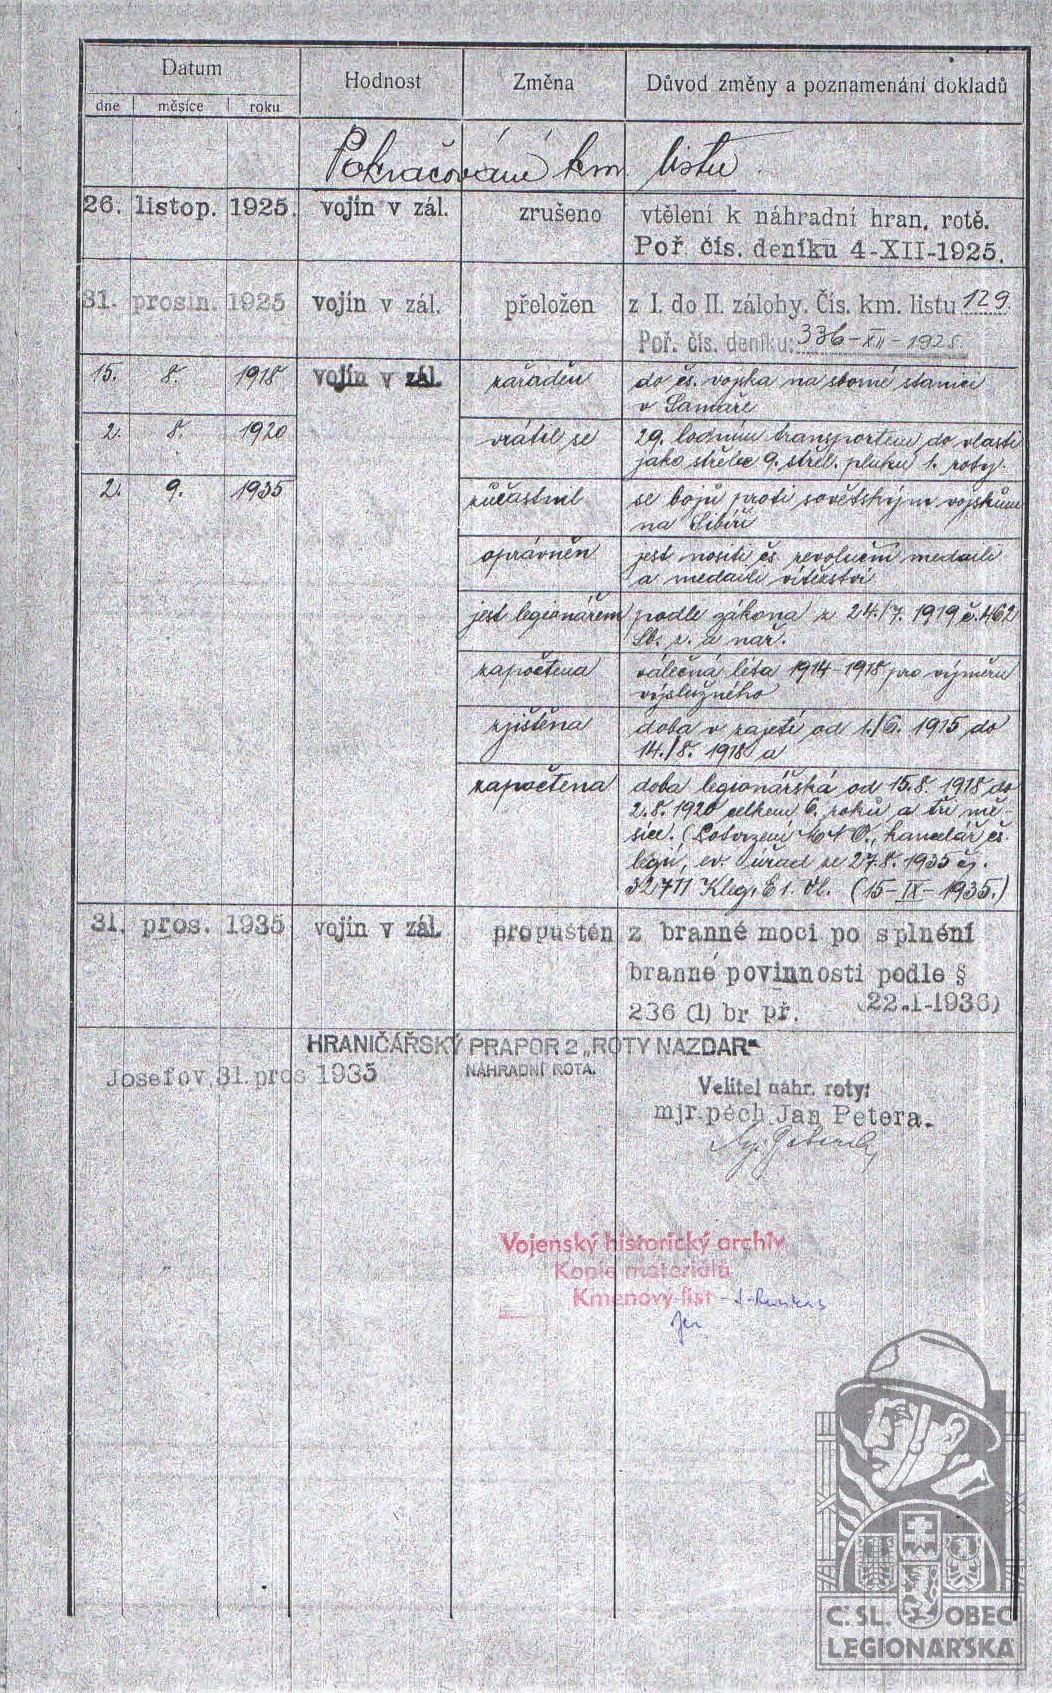 Datum
Hodnost
Změna
Důvod změny a poznamenání dokladů
dne měsíce roku
Pokračování km. listu.
26. listop. 1925. vojín v zál. zrušeno vtělení k náhradní hran. rotě.
Poř. čís. deníku 4-XII-1925.
31. prosin. 1925 vojín v zál. přeložen z I. do II. zálohy. Čís. km. listu 129
Poř. čís. deníku: 336-XII-1925
15. 8. 1918 vojín v zál. zařaděn do čs. vojska na sborné stanici
v Samaře
2. 8. 1920 vrátil se 29. lodním transportem do vlasti
jako střelec 9. střel. pluku 1. roty.
2. 9. 1935 zúčastnil se bojů proti sovětským vojskům
na Sibiři
oprávněn jest nositi čs. revoluční medaili
a medaili vítězství
jest legionářem podle zákona z 24./7. 1919 č. 462
Sb. z. a nař.
započtena válečná léta 1914-1918 pro výměru
výslužného
zjištěna doba v zajetí od 1./6. 1915 do
14./8. 1918 a
započtena doba legionářská od 15.8. 1918 do
2.8. 1920 celkem 6 roků a tři mě-
síce. (Potvrzení MNO., kancelář čs.
legií, ev. úřad ze 27.8. 1935 čj.
32711 Kleg. (15-IX-1935.)
31. pros. 1935 vojín v zál. propuštěn z branné moci po splnění
branné povinnosti podle §
236 (1) br př. (22.1-1936)
HRANIČÁŘSKÝ PRAPOR 2 „ROTY NAZDAR"
Josefov, 31. pros 1935 NÁHRADNÍ ROTA.
Velitel náhr. roty:
mjr. pěch. Jan Petera.
Vojenský historický archiv
Kopie materiálů
Kmenový list
Č. SL. OBEC
LEGIONÁŘSKÁ